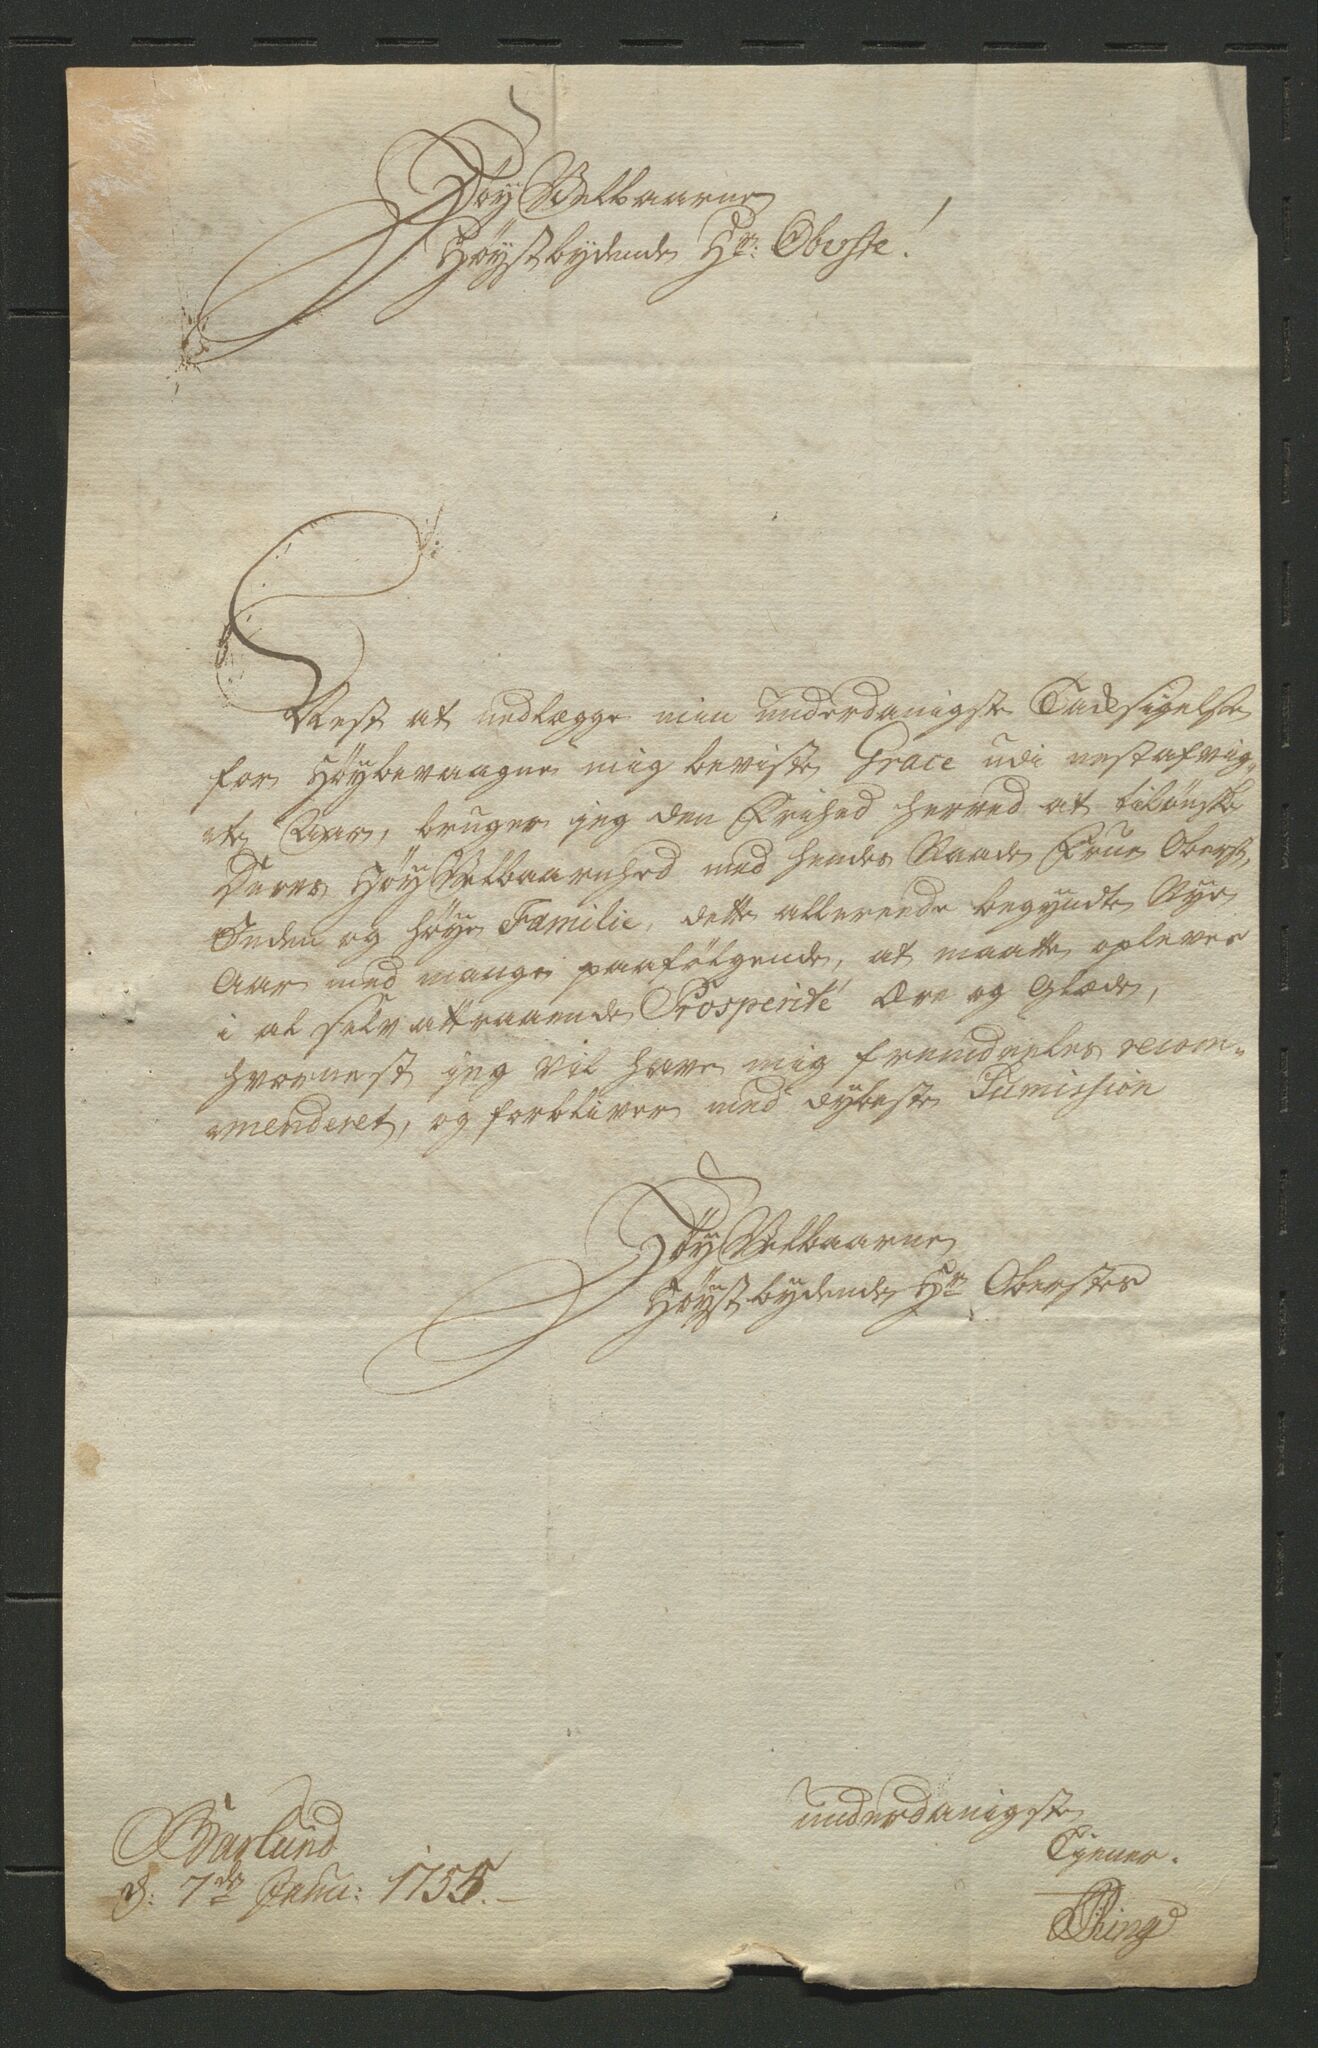 Høy Velbaarne
Høystbydende Hr: Oberste!
Nest at nedlægge min underdanigste Tacksigelse
for Høybevaagne mig beviiste Grace udi nestafvig-
te Aar, bruger jeg den Frihed herved at tilønske
Deres Høy Velbaarnhed med hendes Naade Frue Oberst-
Inden og høye Familie, dette allereede begyndte Nye
Aar med mange paafølgende, at maatte opleves
i al selv attraaende Prosperité Ære og Glæde,
hvornest jeg vil have mig fremdeeles recom-
menderet, og forbliver med dybeste Sumission
Høy Velbaarne
Høystbydende Hr Oberstes
underdanigste
Tjener.
Barlund
d: 7de Janu: 1755.